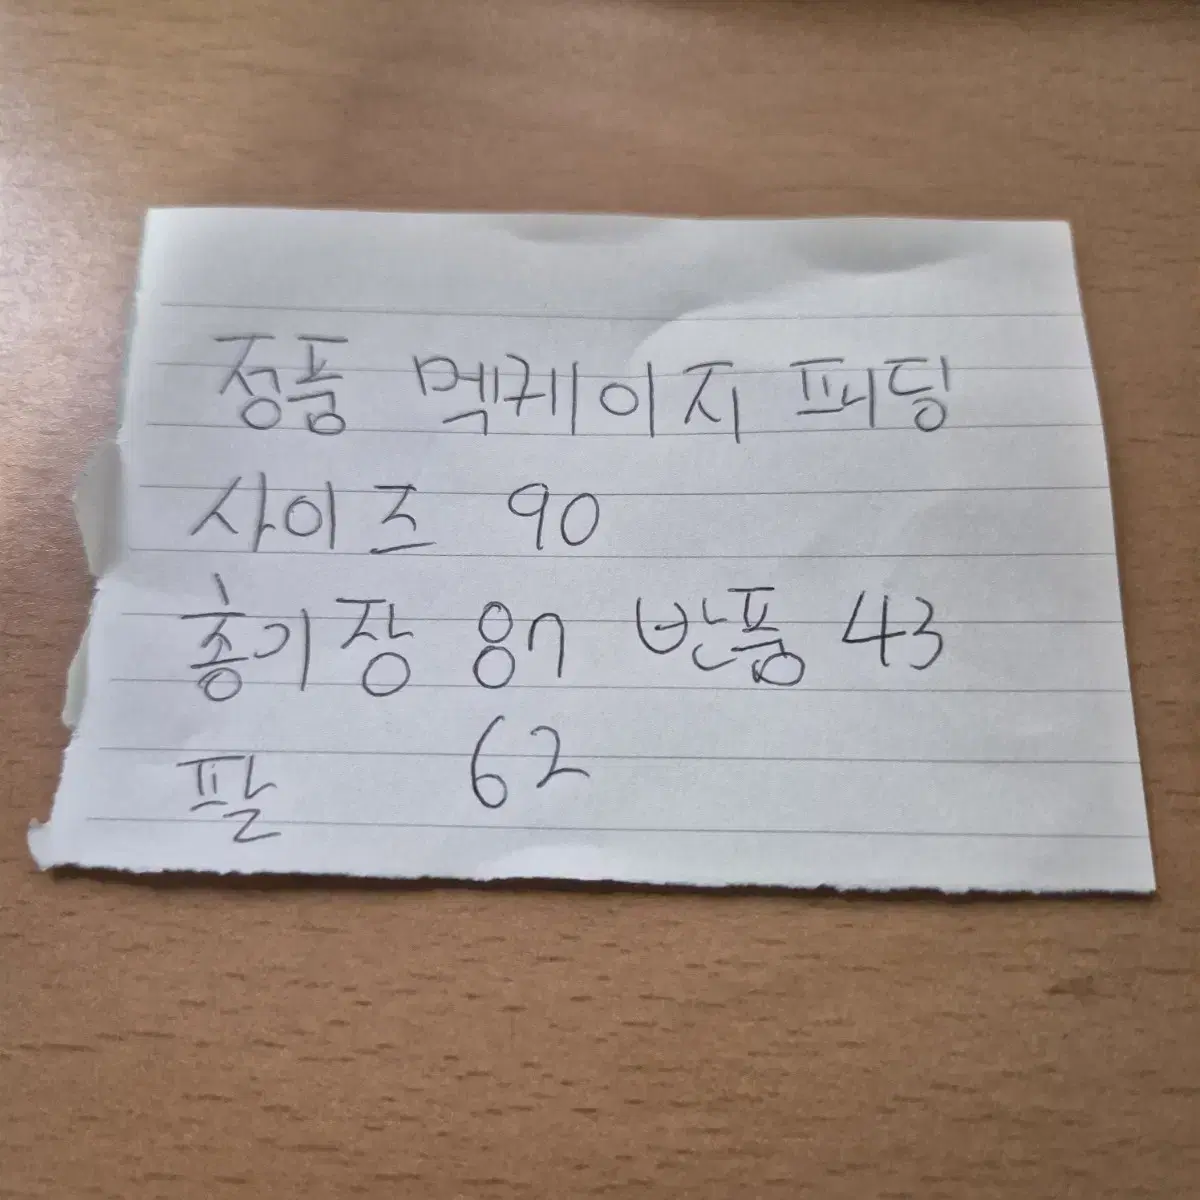 정품 멕케이지 패딩
사이즈 90
총기장 87 반품 43
팔 62